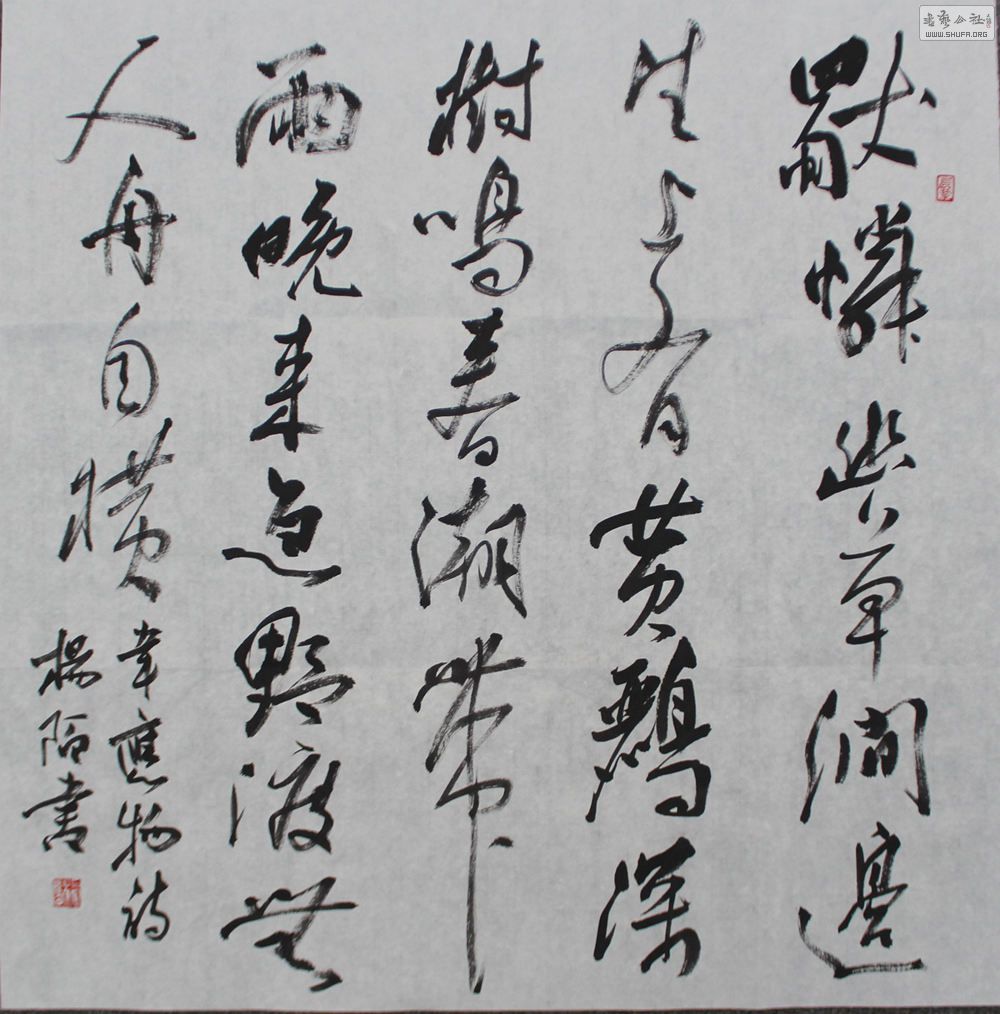 獨憐幽草澗邊
生上有黄鸝深
樹鳴春潮帶
雨晚来急野渡無
人舟自橫
韋應物詩
楊陌書
書藝公社
WWW.SHUFA.ORG